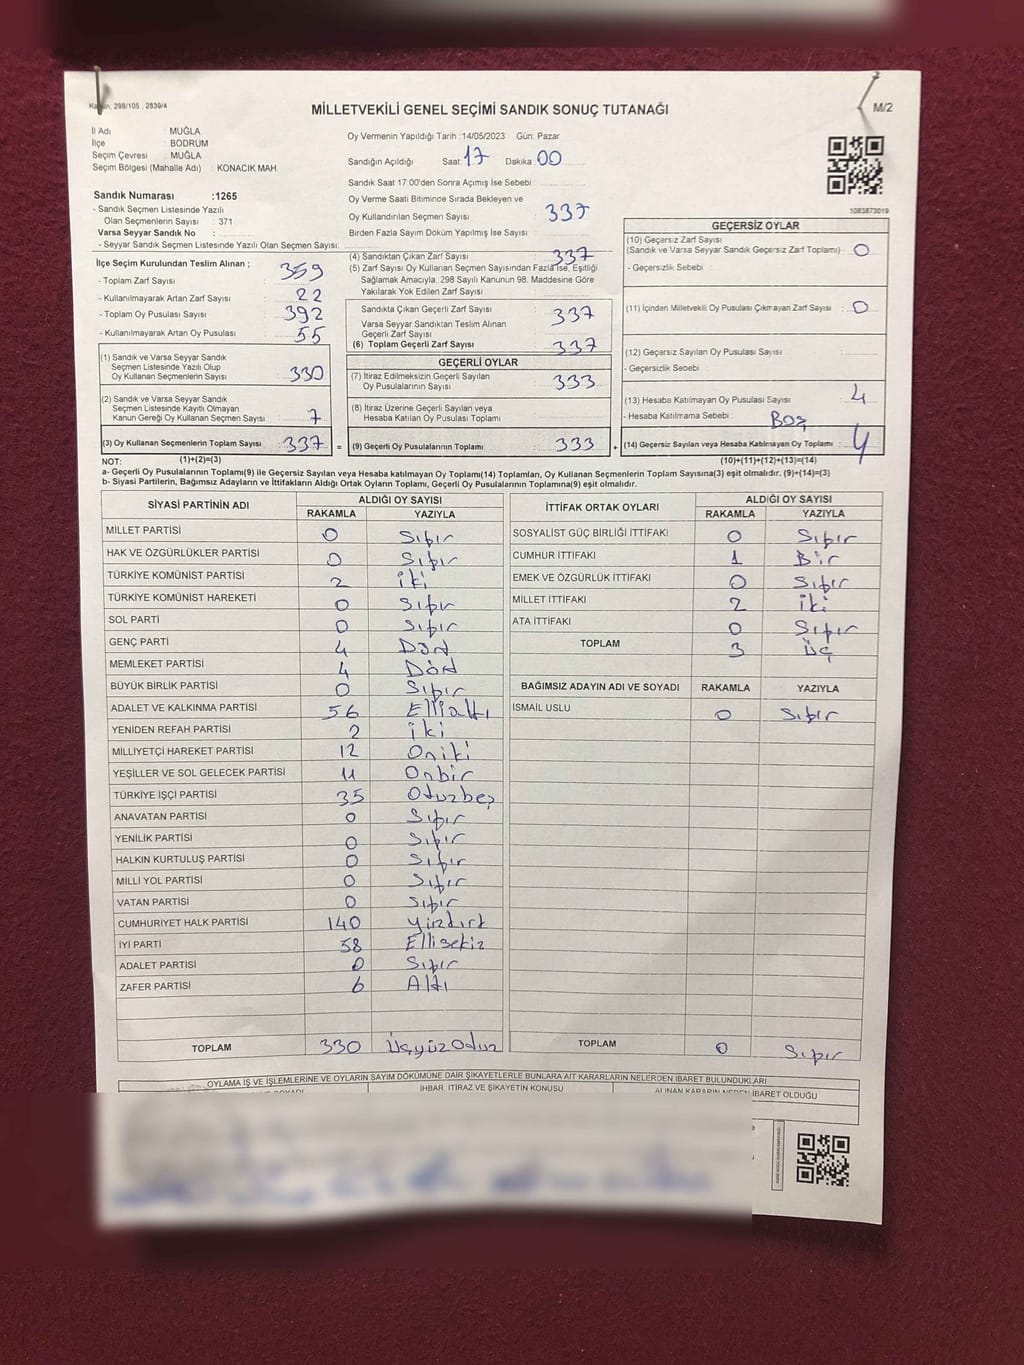 Kanun: 298/105 , 2839/4
MİLLETVEKİLİ GENEL SEÇİMİ SANDIK SONUÇ TUTANAĞI
M/2
İl Adı : MUĞLA
İlçe : BODRUM
Seçim Çevresi : MUĞLA
Seçim Bölgesi (Mahalle Adı) : KONACIK MAH
Sandık Numarası :1265
- Sandık Seçmen Listesinde Yazılı
Olan Seçmenlerin Sayısı : 371
Varsa Seyyar Sandık No :
- Seyyar Sandık Seçmen Listesinde Yazılı Olan Seçmen Sayısı:
Oy Vermenin Yapıldığı Tarih :14/05/2023 Gün: Pazar
Sandığın Açıldığı Saat: 17 Dakika: 00
Sandık Saat 17.00'den Sonra Açımış İse Sebebi :
Oy Verme Saati Bitiminde Sırada Bekleyen ve
Oy Kullandırılan Seçmen Sayısı : 337
Birden Fazla Sayım Döküm Yapılmış İse Sayısı :
1083873019
İlçe Seçim Kurulundan Teslim Alınan ;
- Toplam Zarf Sayısı : 359
- Kullanılmayarak Artan Zarf Sayısı : 22
- Toplam Oy Pusulası Sayısı : 392
- Kullanılmayarak Artan Oy Pusulası : 55
(1) Sandık ve Varsa Seyyar Sandık
Seçmen Listesinde Yazılı Olup
Oy Kullanan Seçmenlerin Sayısı : 330
(2) Sandık ve Varsa Seyyar Sandık
Seçmen Listesinde Kayıtlı Olmayan
Kanun Gereği Oy Kullanan Seçmen Sayısı : 7
(3) Oy Kullanan Seçmenlerin Toplam Sayısı : 337 =
(1)+(2)=(3)
(4) Sandıktan Çıkan Zarf Sayısı : 337
(5) Zarf Sayısı Oy Kullanan Seçmen Sayısından Fazla İse, Eşitliği
Sağlamak Amacıyla, 298 Sayılı Kanunun 98. Maddesine Göre
Yakılarak Yok Edilen Zarf Sayısı :
Sandıkta Çıkan Geçerli Zarf Sayısı : 337
Varsa Seyyar Sandıktan Teslim Alınan
Geçerli Zarf Sayısı
(6) Toplam Geçerli Zarf Sayısı : 337
GEÇERLİ OYLAR
(7) İtiraz Edilmeksizin Geçerli Sayılan
Oy Pusulalarının Sayısı : 333
(8) İtiraz Üzerine Geçerli Sayılan veya
Hesaba Katılan Oy Pusulası Toplamı
(9) Geçerli Oy Pusulalarının Toplamı : 333 +
GEÇERSİZ OYLAR
(10) Geçersiz Zarf Sayısı
(Sandık ve Varsa Seyyar Sandık Geçersiz Zarf Toplamı) : 0
- Geçersizlik Sebebi :
(11) İçinden Milletvekili Oy Pusulası Çıkmayan Zarf Sayısı : 0
(12) Geçersiz Sayılan Oy Pusulası Sayısı :
- Geçersizlik Sebebi :
(13) Hesaba Katılmayan Oy Pusulası Sayısı : 4
- Hesaba Katılmama Sebebi : Boş
(14) Geçersiz Sayılan veya Hesaba Katılmayan Oy Toplamı : 4
(10)+(11)+(12)+(13)=(14)
NOT:
a- Geçerli Oy Pusulalarının Toplamı(9) ile Geçersiz Sayılan veya Hesaba katılmayan Oy Toplamı(14) Toplamları, Oy Kullanan Seçmenlerin Toplam Sayısına(3) eşit olmalıdır. (9)+(14)=(3)
b- Siyasi Partilerin, Bağımsız Adayların ve İttifakların Aldığı Ortak Oyların Toplamı, Geçerli Oy Pusulalarının Toplamına(9) eşit olmalıdır.
SİYASİ PARTİNİN ADI ALDIĞI OY SAYISI
RAKAMLA YAZIYLA
MİLLET PARTİSİ 0 Sıfır
HAK VE ÖZGÜRLÜKLER PARTİSİ 0 Sıfır
TÜRKİYE KOMÜNİST PARTİSİ 2 İki
TÜRKİYE KOMÜNİST HAREKETİ 0 Sıfır
SOL PARTİ 0 Sıfır
GENÇ PARTİ 4 Dörd
MEMLEKET PARTİSİ 4 Dörd
BÜYÜK BİRLİK PARTİSİ 0 Sıfır
ADALET VE KALKINMA PARTİSİ 56 Ellialtı
YENİDEN REFAH PARTİSİ 2 İki
MİLLİYETÇİ HAREKET PARTİSİ 12 Oniki
YEŞİLLER VE SOL GELECEK PARTİSİ 11 Onbir
TÜRKİYE İŞÇİ PARTİSİ 35 Otuzbeş
ANAVATAN PARTİSİ 0 Sıfır
YENİLİK PARTİSİ 0 Sıfır
HALKIN KURTULUŞ PARTİSİ 0 Sıfır
MİLLİ YOL PARTİSİ 0 Sıfır
VATAN PARTİSİ 0 Sıfır
CUMHURİYET HALK PARTİSİ 140 Yüzkırk
İYİ PARTİ 58 Ellisekiz
ADALET PARTİSİ 0 Sıfır
ZAFER PARTİSİ 6 Altı
TOPLAM 330 Üçyüz Oduz
İTTİFAK ORTAK OYLARI ALDIĞI OY SAYISI
RAKAMLA YAZIYLA
SOSYALİST GÜÇ BİRLİĞİ İTTİFAKI 0 Sıfır
CUMHUR İTTİFAKI 1 Bir
EMEK VE ÖZGÜRLÜK İTTİFAKI 0 Sıfır
MİLLET İTTİFAKI 2 İki
ATA İTTİFAKI 0 Sıfır
TOPLAM 3 Üç
BAĞIMSIZ ADAYIN ADI VE SOYADI RAKAMLA YAZIYLA
İSMAİL USLU 0 Sıfır
TOPLAM 0 Sıfır
OYLAMA İŞ VE İŞLEMLERİNE VE OYLARIN SAYIM DÖKÜMÜNE DAİR ŞİKAYETLERLE BUNLARA AİT KARARLARIN NELERDEN İBARET BULUNDUKLARI
İHBAR, İTİRAZ VE ŞİKAYETİN KONUSU
ALINAN KARARIN NEDEN İBARET OLDUĞU